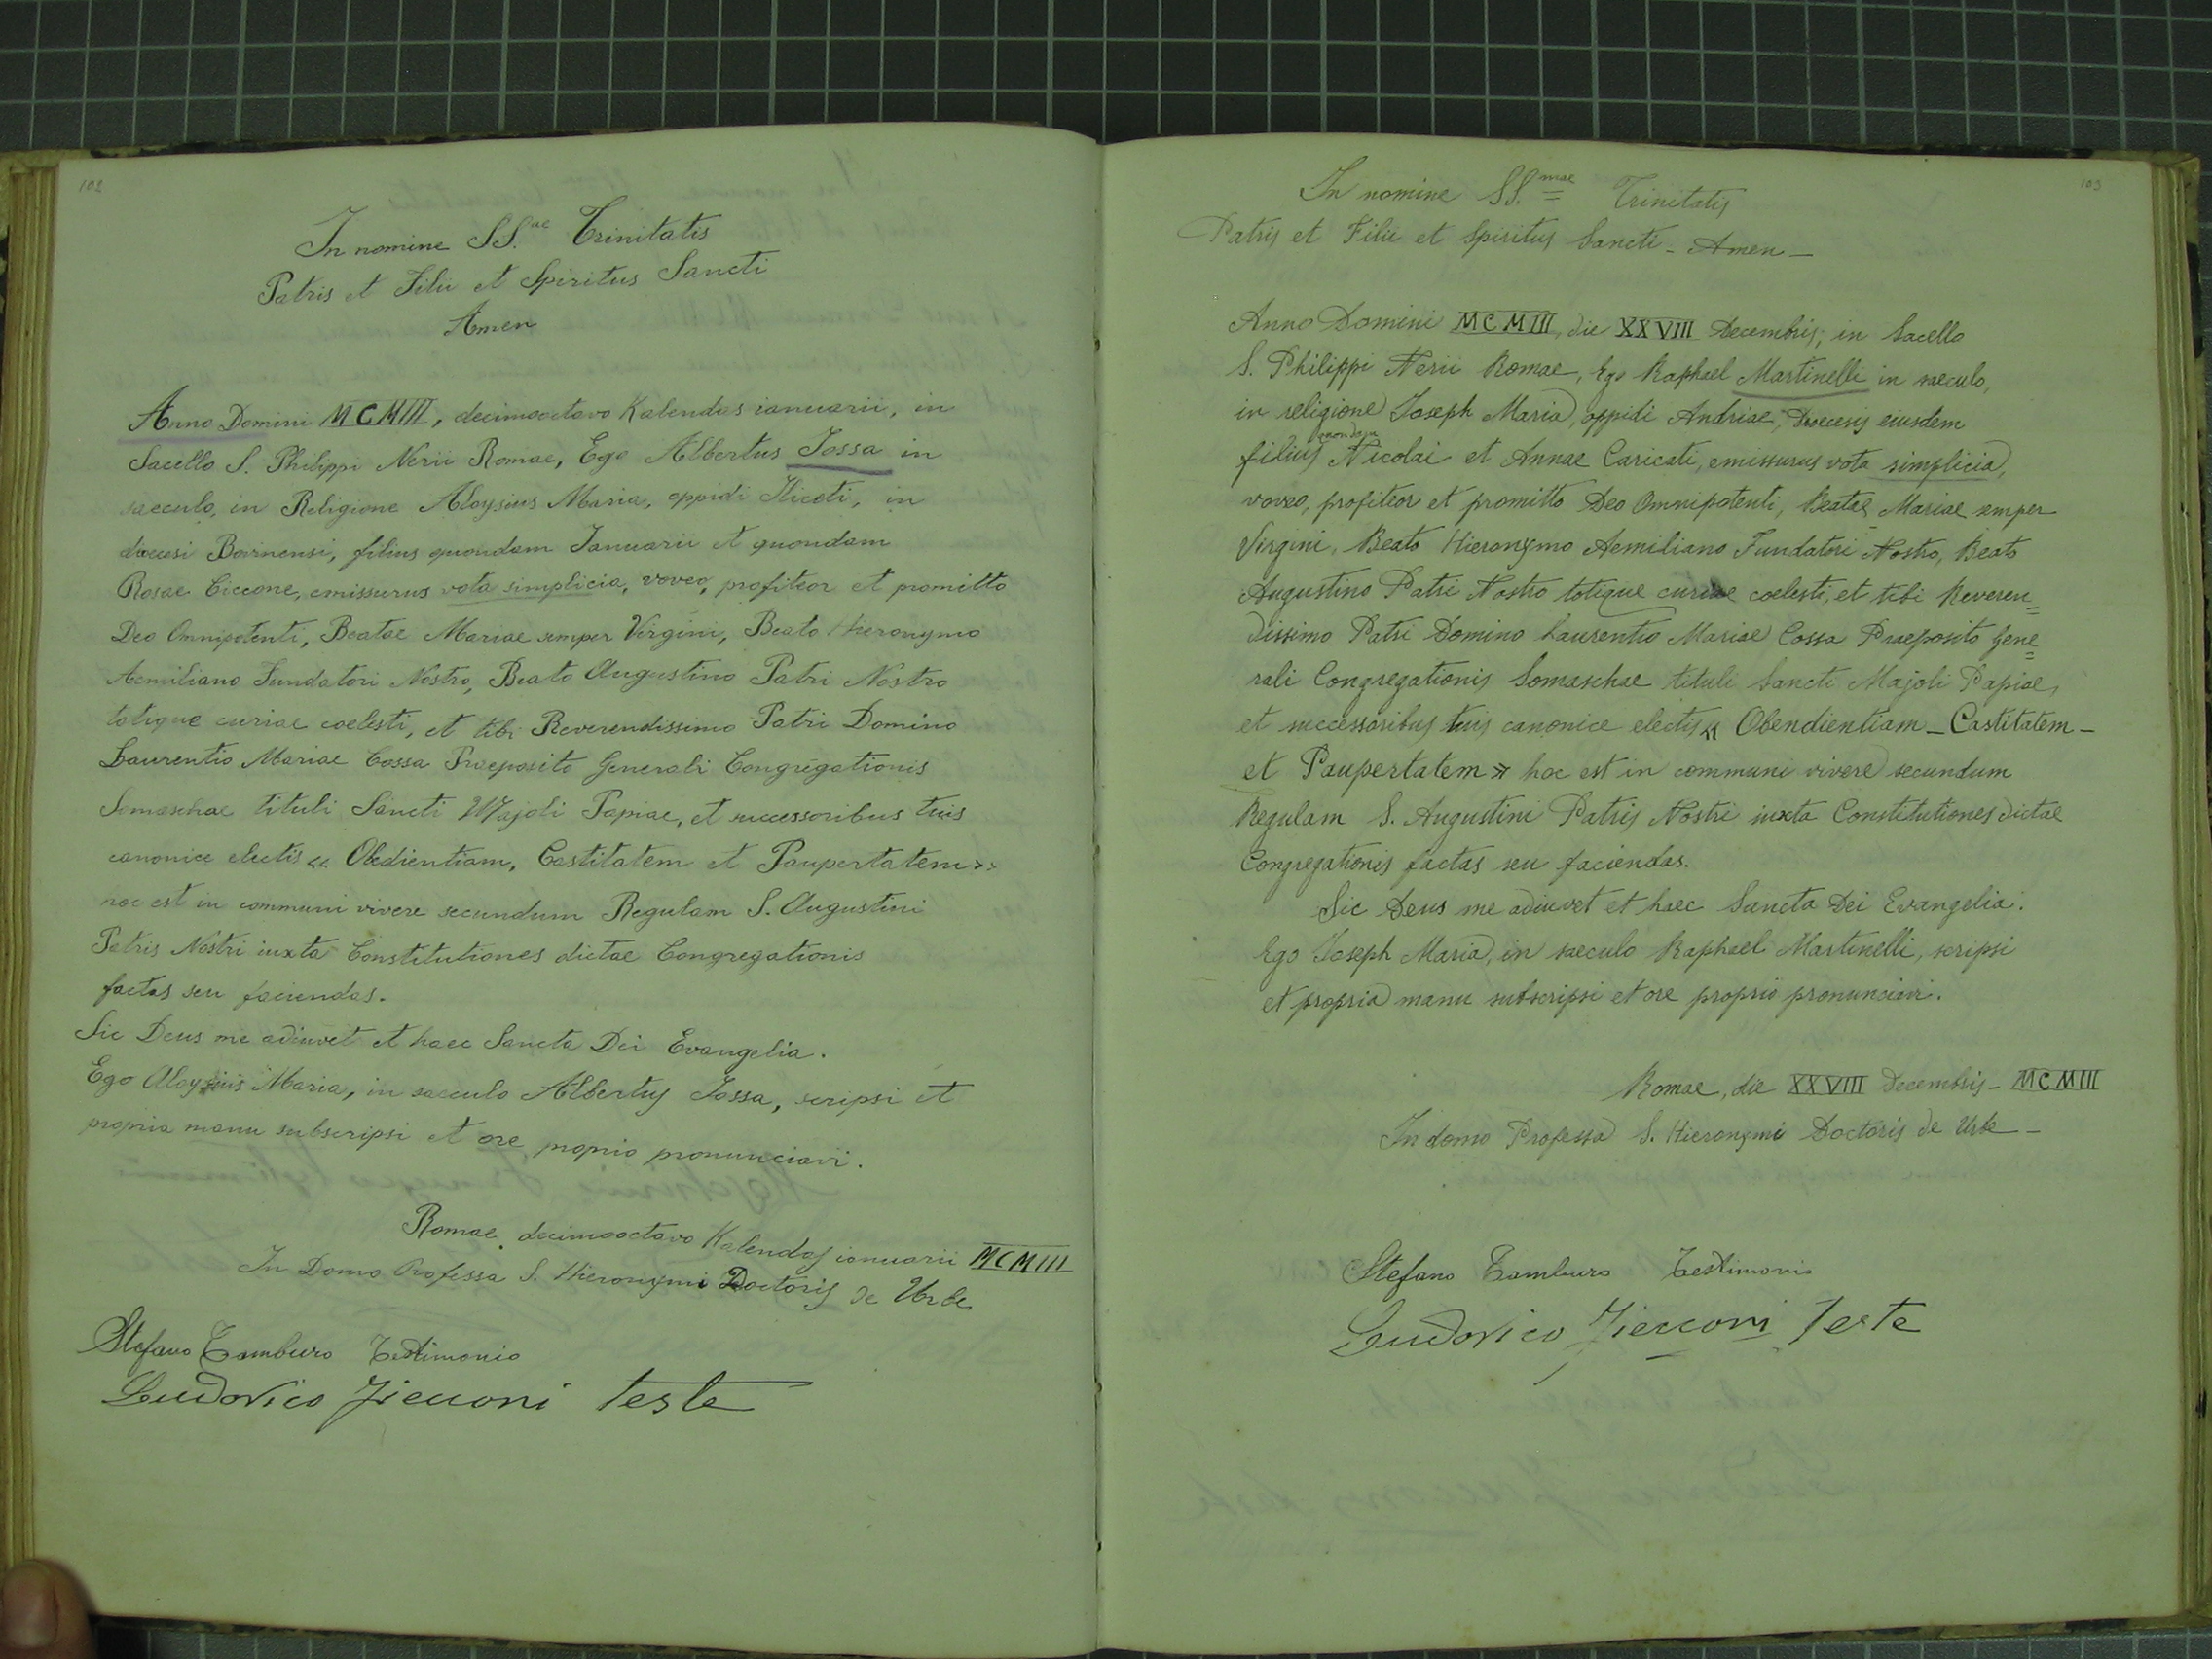 102
In nomine SS.ae Trinitatis
Patris et Filii et Spiritus Sancti
Amen
Anno Domini MCMIII, decimooctavo Kalendas ianuarii, in
Sacello S. Philippi Nerii Romae, Ego Albertus Iossa in
saeculo, in Religione Aloysius Maria, oppidi Iliceti, in
dioecesi Boinensi, filius quondam Ianuarii et quondam
Rosae Ciccone, emissurus vota simplicia, voveo, profiteor et promitto
Deo Omnipotenti, Beatae Mariae semper Virgini, Beato Hieronymo
Aemiliano Fundatori Nostro, Beato Augustino Patri Nostro
totique curiae coelesti, et tibi Reverendissimo Patri Domino
Laurentio Mariae Cossa Praeposito Generali Congregationis
Somaschae tituli Sancti Majoli Papiae, et successoribus tuis
canonice electis « Obedientiam, Castitatem et Paupertatem »
hoc est in communi vivere secundum Regulam S. Augustini
Patris Nostri iuxta Constitutiones dictae Congregationis
factas seu faciendas.
Sic Deus me adiuvet et haec Sancta Dei Evangelia.
Ego Aloysius Maria, in saeculo Albertus Iossa, scripsi et
propria manu subscripsi et ore proprio pronunciavi.
Romae, decimooctavo Kalendas ianuarii MCMIII
In Domo Professa S. Hieronymi Doctoris de Urbe
Stefano Tamburo Testimonio
Ludovico Ziecconi teste
103
In nomine SS.mae Trinitatis
Patris et Filii et Spiritus Sancti - Amen -
Anno Domini MCMIII, die XXVIII Decembris, in Sacello
S. Philippi Nerii Romae, Ego Raphael Martinelli in saeculo,
in religione Ioseph Maria, oppidi Andriae, Dioecesis eiusdem
filius quondam Nicolai et Annae Caricati, emissurus vota simplicia,
voveo, profiteor et promitto Deo Omnipotenti, Beatae Mariae semper
Virgini, Beato Hieronymo Aemiliano Fundatori Nostro, Beato
Augustino Patri Nostro totique curiae coelesti, et tibi Reveren=
dissimo Patri Domino Laurentio Mariae Cossa Praeposito Gene=
rali Congregationis Somaschae tituli Sancti Majoli Papiae,
et successoribus tuis canonice electis « Obendientiam - Castitatem -
et Paupertatem » hoc est in communi vivere secundum
Regulam S. Augustini Patris Nostri iuxta Constitutiones dictae
Congregationis factas seu faciendas.
Sic Deus me adiuvet et haec Sancta Dei Evangelia.
Ego Ioseph Maria, in saeculo Raphael Martinelli, scripsi
et propria manu subscripsi et ore proprio pronunciavi.
Romae, die XXVIII Decembris - MCMIII
In domo Professa S. Hieronymi Doctoris de Urbe -
Stefano Tamburo Testimonio
Ludovico Ziecconi Teste